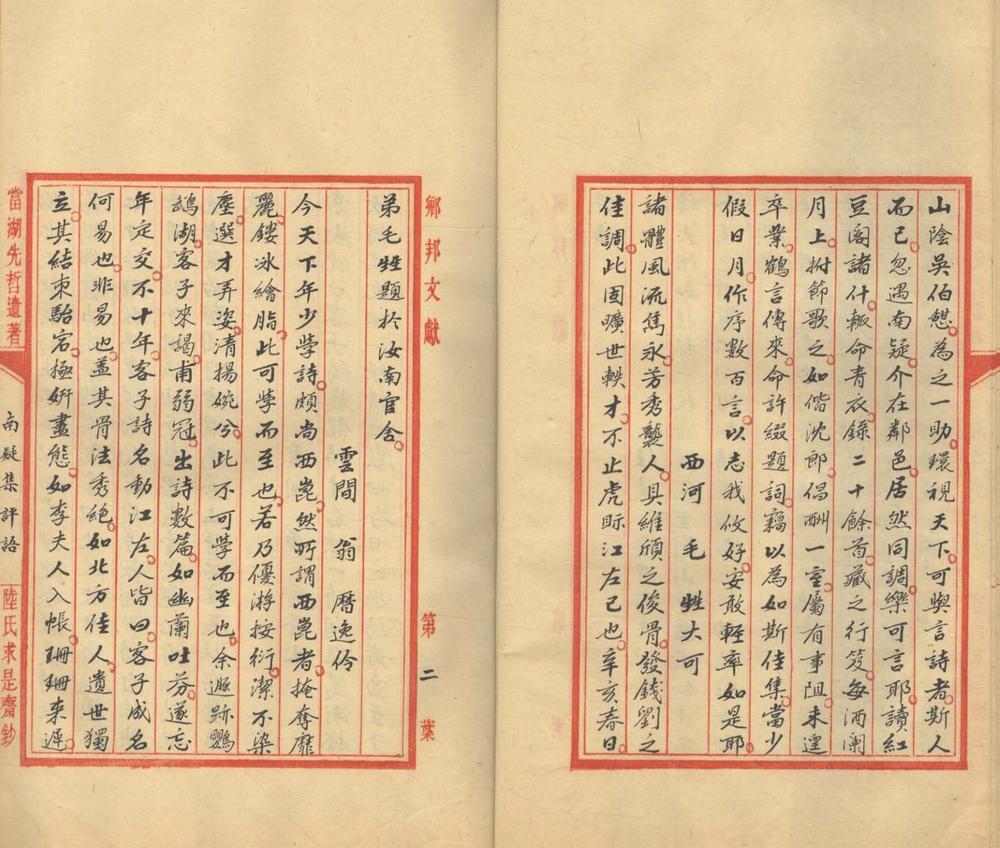 山陰吳伯憇為之一助環視天下可與言詩者斯人
而已忽遇南疑介在鄰邑居然同調樂可言耶讀紅
豆閣諸什輙命青衣錄二十餘首藏之行笈每酒闌
月上拊節歌之如偕沈郎倡酬一室屬有事阻未遑
卒業鶴言傳來命許綴題詞竊以為如斯佳集當少
假日月作序數百言以志我攸好安敢輕率如是耶
西河 毛甡大可
諸體風流雋永芳秀襲人具維頎之俊骨發錢劉之
佳調此固曠世軼才不止虎眎江左已也辛亥春日
弟毛甡題於汝南官舍
雲間 翁曆逸伶
今天下年少學詩頗尚西崑然所謂西崑者掩奪靡
麗鏤冰繪脂此可學而至也若乃優游按衍潔不染
塵選才弄姿清揚婉兮此不可學而至也余遯跡鸚
鵡湖客子來謁甫弱冠出詩數篇如幽蘭吐芬遂忘
年定交不十年客子詩名動江左人皆曰客子成名
何易也非易也葢其骨法秀絕如北方佳人遺世獨
立其結束駘宕極妍盡態如李夫人入帳珊珊來遲
鄉邦文獻
第二葉
當湖先哲遺著
南疑集評語
陸氏求是齋鈔